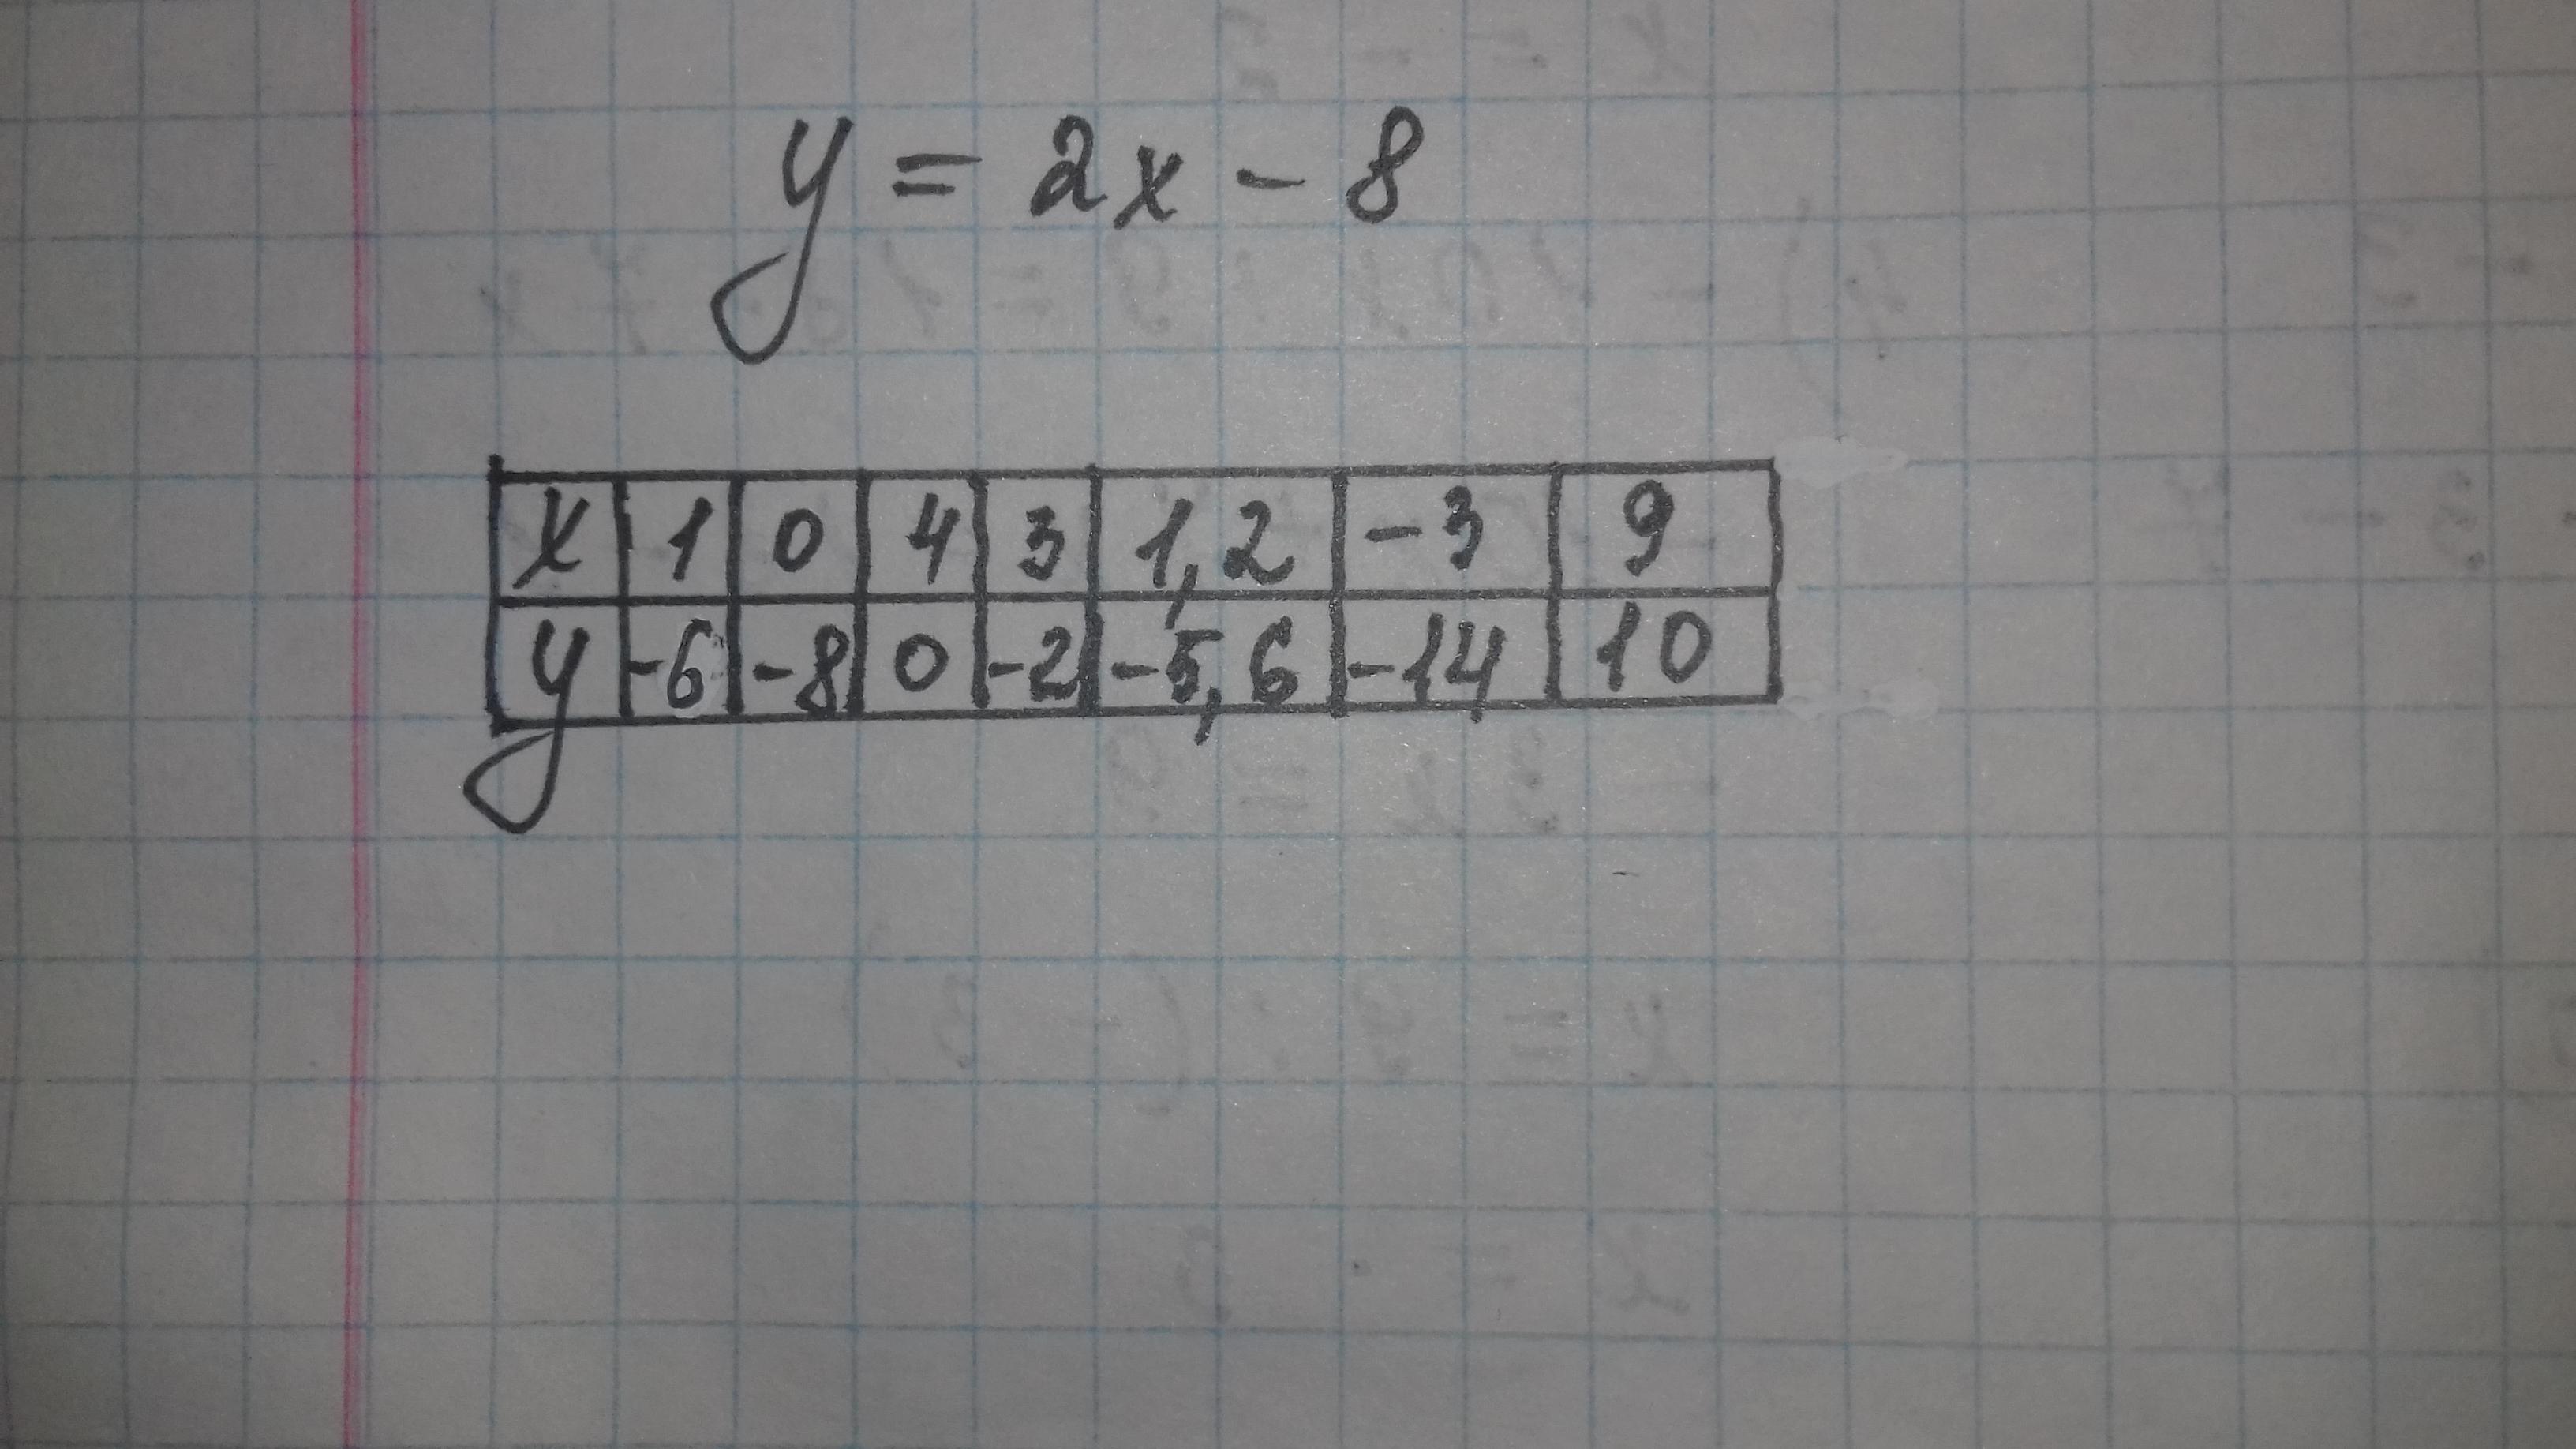 y = 2x - 8
x 1 0 4 3 1,2 -3 9
y -6 -8 0 -2 -5,6 -14 10